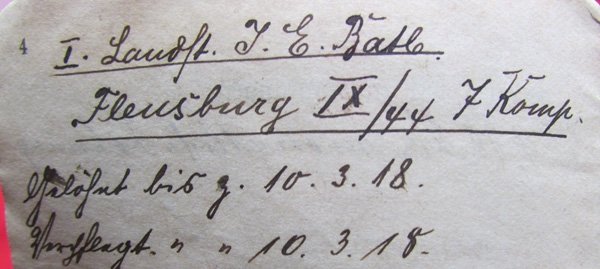 4
I. Landst. J. E. Batl.
Flensburg IX/44 7 Komp.
Gelöhnt bis z. 10. 3. 18.
Verpflegt. " " 10. 3. 18.